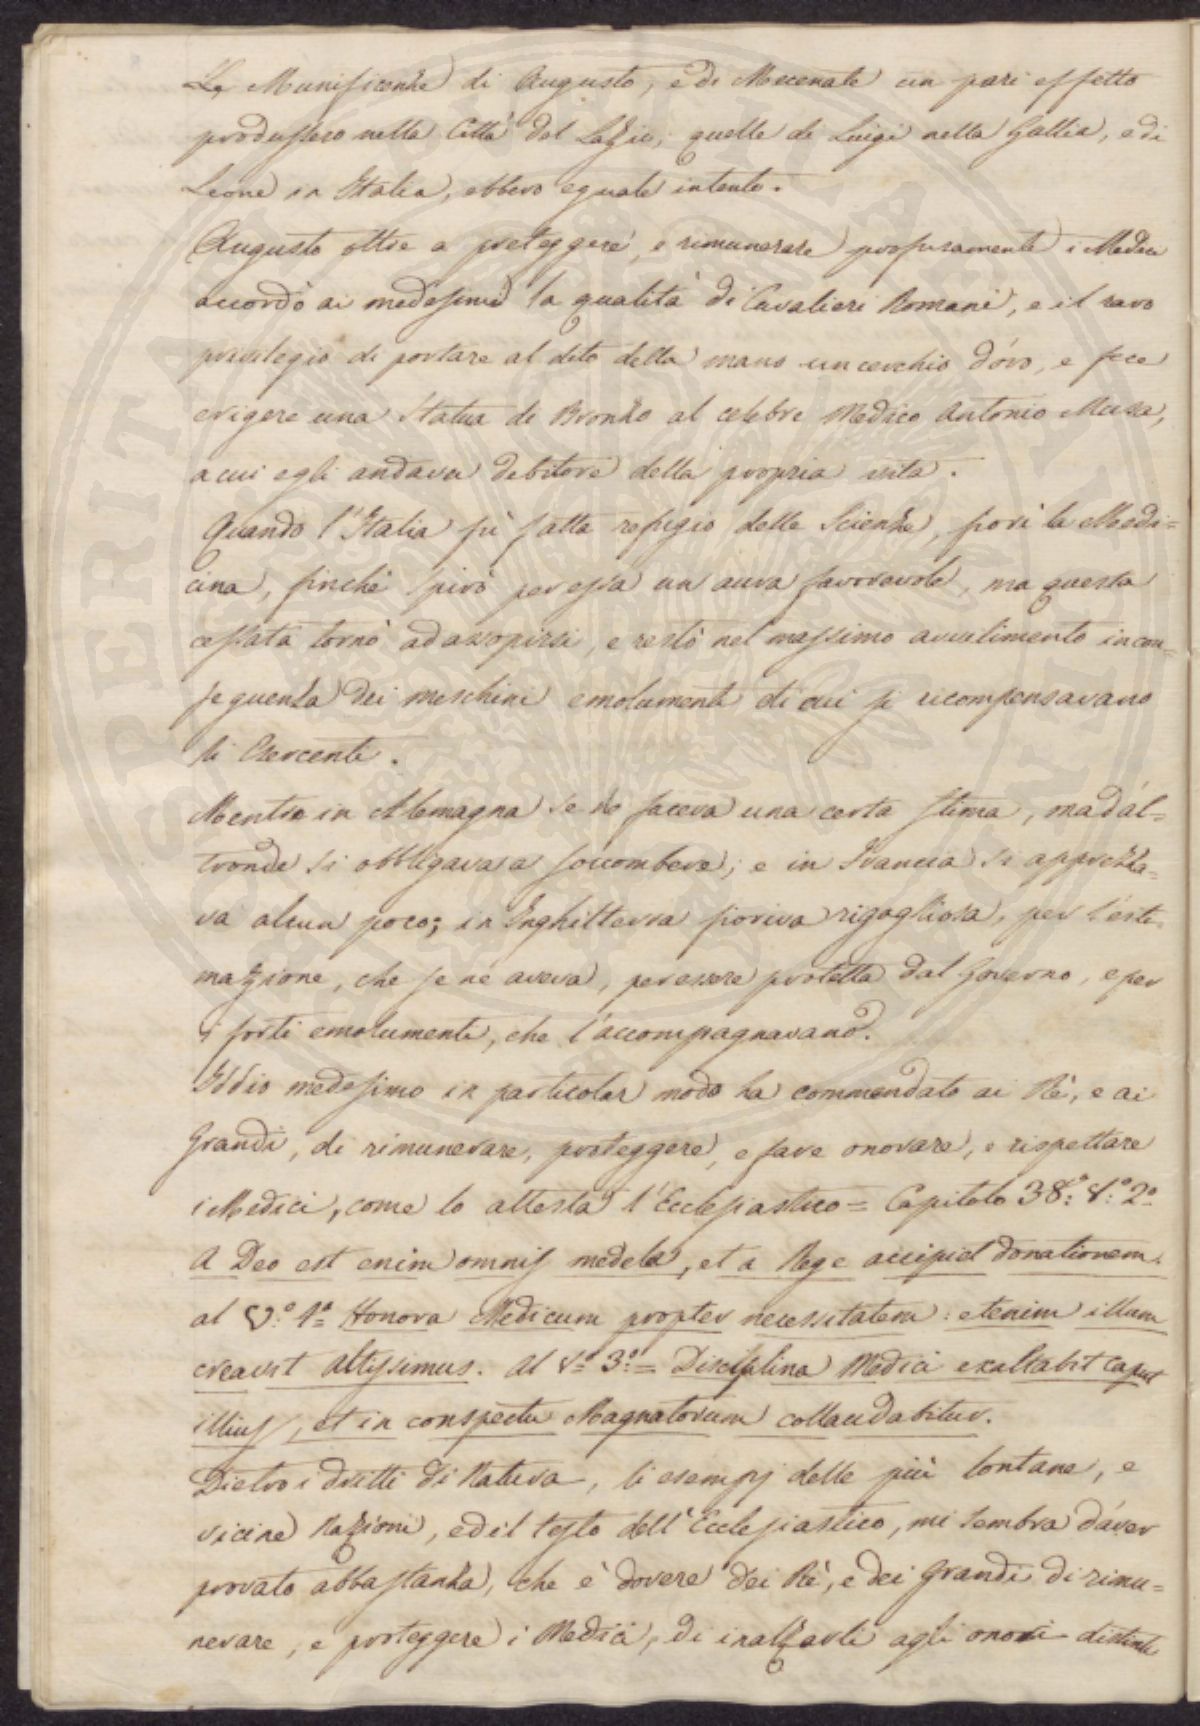 Le Munificenze di Augusto, e di Mecenate un pari effetto
produssero nella Città del Lazio; quelle di Luigi nella Gallia, e di
Leone in Italia, ebbero eguale intento.
Augusto oltre a proteggere, e rimunerare profusamente i Medici
accordò ai medesimi la qualità di Cavalieri Romani, e il raro
privilegio di portare al dito della mano un cerchio d'óro, e fece
erigere una Statua di Bronzo al celebre Medico Antonio Musa,
a cui egli andava debitore della propria vita.
Quando l'Italia fù fatta refugio delle Scienze, fiorì la Medi=
cina, finchè spirò per essa un aura favorevole, ma questa
cessata tornò ad assopirsi, e restò nel massimo avvilimento in con=
seguenza dei meschini emolumenti di cui si ricompensavano
li Esercenti.
Mentre in Alemagna se ne faceva una certa stima, ma d'al=
tronde si obbligava a soccombere; e in Francia si apprezza=
va alcun poco; in Inghilterra fioriva rigogliosa, per l'esti=
mazione, che se ne aveva, per essere protetta dal Governo, e per
i forti emolumenti, che l'accompagnavano.
Iddio medesimo in particolar modo ha commendato ai Rè, e ai
Grandi, di rimunerare, proteggere, e fare onorare, e rispettare
i Medici, come lo attesta l'Ecclesiastico = Capitolo 38.° V.° 2.°
A Deo est enim omnis medela, et a Rege accipiet donationem.
al V.° 1.° Honora Medicum propter necessitatem: etenim illum
creavit altissimus. Al V.° 3.° = Disciplina Medici exaltabit caput
illius, et in conspectu Magnatorum collaudabitur.
Dietro i dritti di Natura, li esempj delle più lontane, e
vicine Nazioni, ed il testo dell'Ecclesiastico, mi sembra d'aver
provato abbastanza, che è dovere dei Rè, e dei Grandi di rimu=
nerare, e proteggere i Medici, di inalzarli agli onori distinti